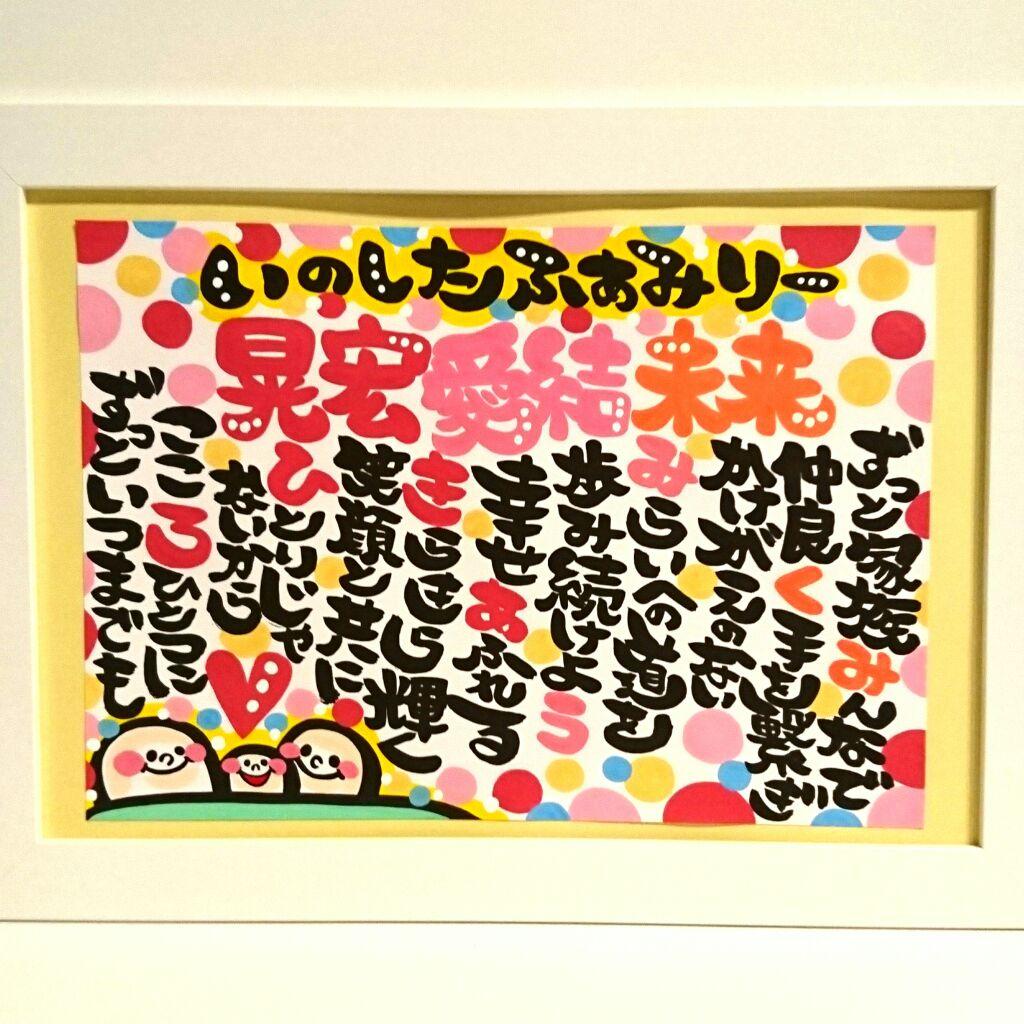 いのしたふぁみりー
晃宏 愛結 未来
ずっと家族みんなで
仲良く手を繋ぎ
かけがえのない
みらいへの道を
歩み続けよう
幸せあふれる
きらきら輝く
笑顔と共に
ひとりじゃ
ないから
こころひとつに
ずっといつまでも